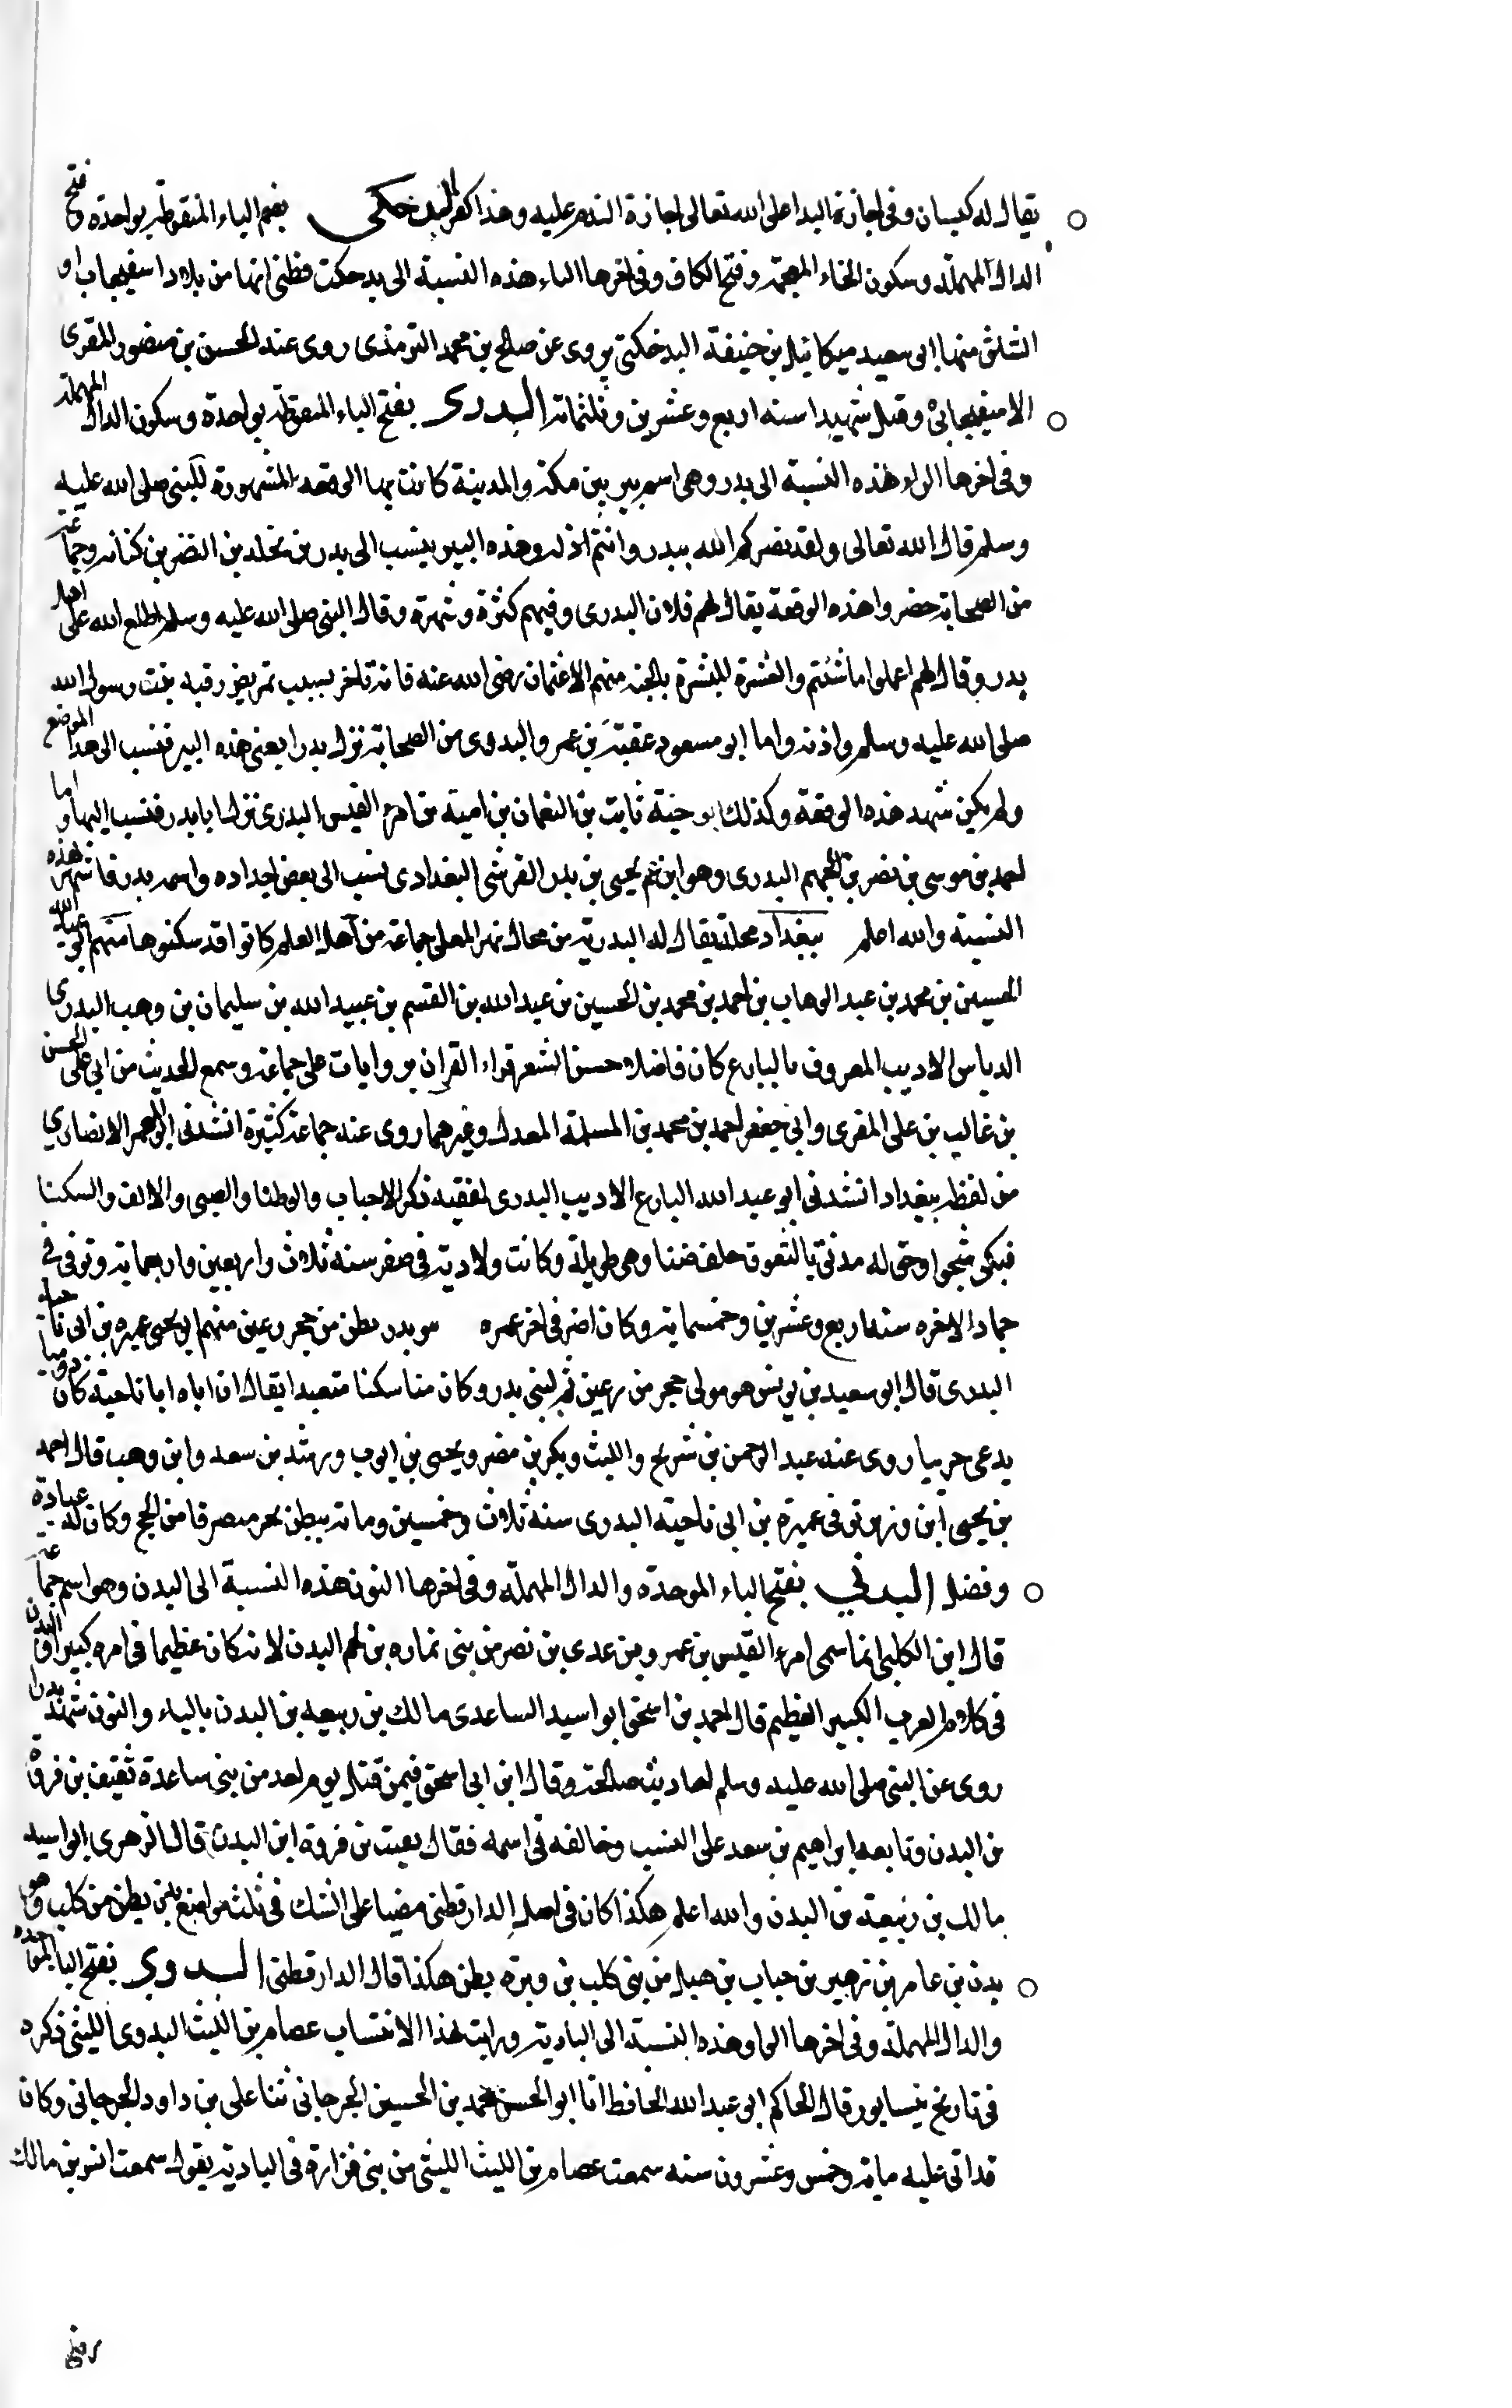 يقال له كيسان وفي اجازة البدا على الله تعالى اجازة الندم عليه وهذا كفر البدخكثي بضم الباء المنقوطة بواحدة وفتح
الدال المهملة وسكون الخاء المعجمة وفتح الكاف وفي اخرها الثاء هذه النسبة الى بدخكث وظني انها من بلاد اسفيجاب او
الشاش منها ابو سعيد ميكائيل بن حنيفة البدخكثي يروى عن صالح بن محمد الترمذى روى عنه الحسن بن منصور المقرى
الاسفيجابي وقتل شهيدا سنه اربع وعشرين وثلثمائة البدرى بفتح الباء المنقوطة بواحدة وسكون الدال المهملة
وفي اخرها الراء هذه النسبة الى بدر وهي اسم بير بين مكة والمدينة كانت بها الوقعه المشهورة للنبي صلى الله عليه
وسلم قال الله تعالى ولقد نصركم الله ببدر وانتم اذله وهذه البير ينسب الى بدر بن مخلد بن النضر بن كنانه وجماعة
من الصحابة حضروا هذه الوقعة يقال لهم فلان البدرى وفيهم كثرة وشهرة وقال النبي صلى الله عليه وسلم اطلع الله على اهل
بدر وقال لهم اعملوا ما شئتم والعشرة المبشرة بالجنه منهم الا عثمان رضى الله عنه فانه تاخر بسبب تمريض رقيه بنت رسول الله
صلى الله عليه وسلم واذنه واما ابو مسعود عقبة بن عمرو البدرى من الصحابة نزل بدرا يعني هذه البير فنسب الى هذا الموضع
ولم يكن شهد هذه الوقعة وكذلك ابو حنة ثابت بن النعمان بن امية بن امرء القيس البدرى نزل بدر فنسب اليها واما
احمد بن موسى بن نصر بن الجهم البدرى وهو ابن عم يحيى بن بدر القرشى البغدادى نسب الى بعض اجداده واسمه بدر فاشتهر بهذه
النسبة والله اعلم ببغداد محلة يقال له البدرية من محال نهر المعلى جماعة من اهل العلم كانوا قد سكنوها منهم ابو عبد الله
الحسين بن محمد بن عبد الوهاب بن احمد بن محمد بن الحسين بن عبد الله بن القسم بن عبيد الله بن سليمان بن وهب البدرى
الدباس الاديب المعروف بالبارع كان فاضلا حسن الشعر قراء القران بروايات على جماعة وسمع الحديث من ابي على الحسن
بن غالب بن على المقرى وابي جعفر احمد بن محمد بن المسلمة المعدل وغيرهما روى عنه جماعة كثيرة انشدنى ابو المعمر الانصارى
من لفظه ببغداد انشدنى ابو عبد الله البارع الاديب البدرى لنفسه ذكر الاحباب والوطنا والصبى والالف والسكنا
فبكى شجوا وحق له مدنف بالشوق حلف ضنا وهي طويلة وكانت ولادته في صفر سنة ثلاث واربعين واربعمائة وتوفي في
جماد الاخره سنة اربع وعشرين وخمسمائة وكان اضر في اخر عمره بنو بدر بطن من حجر رعين منهم ابو يحيى عميره بن ابى ناجية
البدرى قال ابو سعيد بن يونس هو مولى حجر من رعين ثم لبنى بدر وكان متعبدا يقال ان اباه ابا ناجية كان روميا
يدعى حريبا روى عنه عبد الرحمن بن شريح والليث وبكر بن مضر ويحيى بن ايوب ورشد بن سعد وابن وهب قال احمد
بن يحيى ابن وزير توفي عميرة بن ابى ناجية البدرى سنة ثلاث وخمسين ومائة ببطن نحر منصرفا من الحج وكان له عبادة
وفضل البدني بفتح الباء الموحده والدال المهملة وفي اخرها النون هذه النسبة الى البدن وهو اسم جماعة
قال ابن الكلبي انما سمى امرء القيس بن عمرو بن عدى بن نصر من بنى نماره بن لخم البدن لانه كان عظيما في امره كبيرا والبدن
في كلام العرب الكبير العظيم قال احمد بن اسحق ابو اسيد الساعدى مالك بن ربيعه بن البدن بالباء والنون شهد بدرا
روى عن النبي صلى الله عليه وسلم احاديث صالحة وقال ابن ابى اسحق فيمن قتل يوم احد من بنى ساعدة ثقيف بن فروة
بن البدن وتابعه ابراهيم بن سعد على النسب وخالفه في اسمه فقال نقيب بن فروة ابن البدن قال الزهرى ابو اسيد
مالك بن ربيعة بن البدن والله اعلم هكذا كان في اصل الدارقطنى مضيا على الشك في ثلث مواضع بدن بطن من كلب وهو
بدن بن عامر بن زهير بن جناب بن هبل من بنى كلب بن وبره بطن هكذا قال الدارقطنى البدوي بفتح الباء الموحده
والدال المهملة وفي اخرها الواو هذه النسبة الى البادية ورايت بهذا الانتساب عصام بن الليث البدوى الليثى ذكره
في تاريخ نيسابور قال الحاكم ابو عبد الله الحافظ انا ابو الحسن محمد بن الحسين الجرجانى ثنا على بن داود الجرجانى وكان
قد اتى عليه مائة وخمس وعشرون سنه سمعت عصام بن الليث الليثى من بنى فزارة في البادية يقول سمعت انس بن مالك
رضي